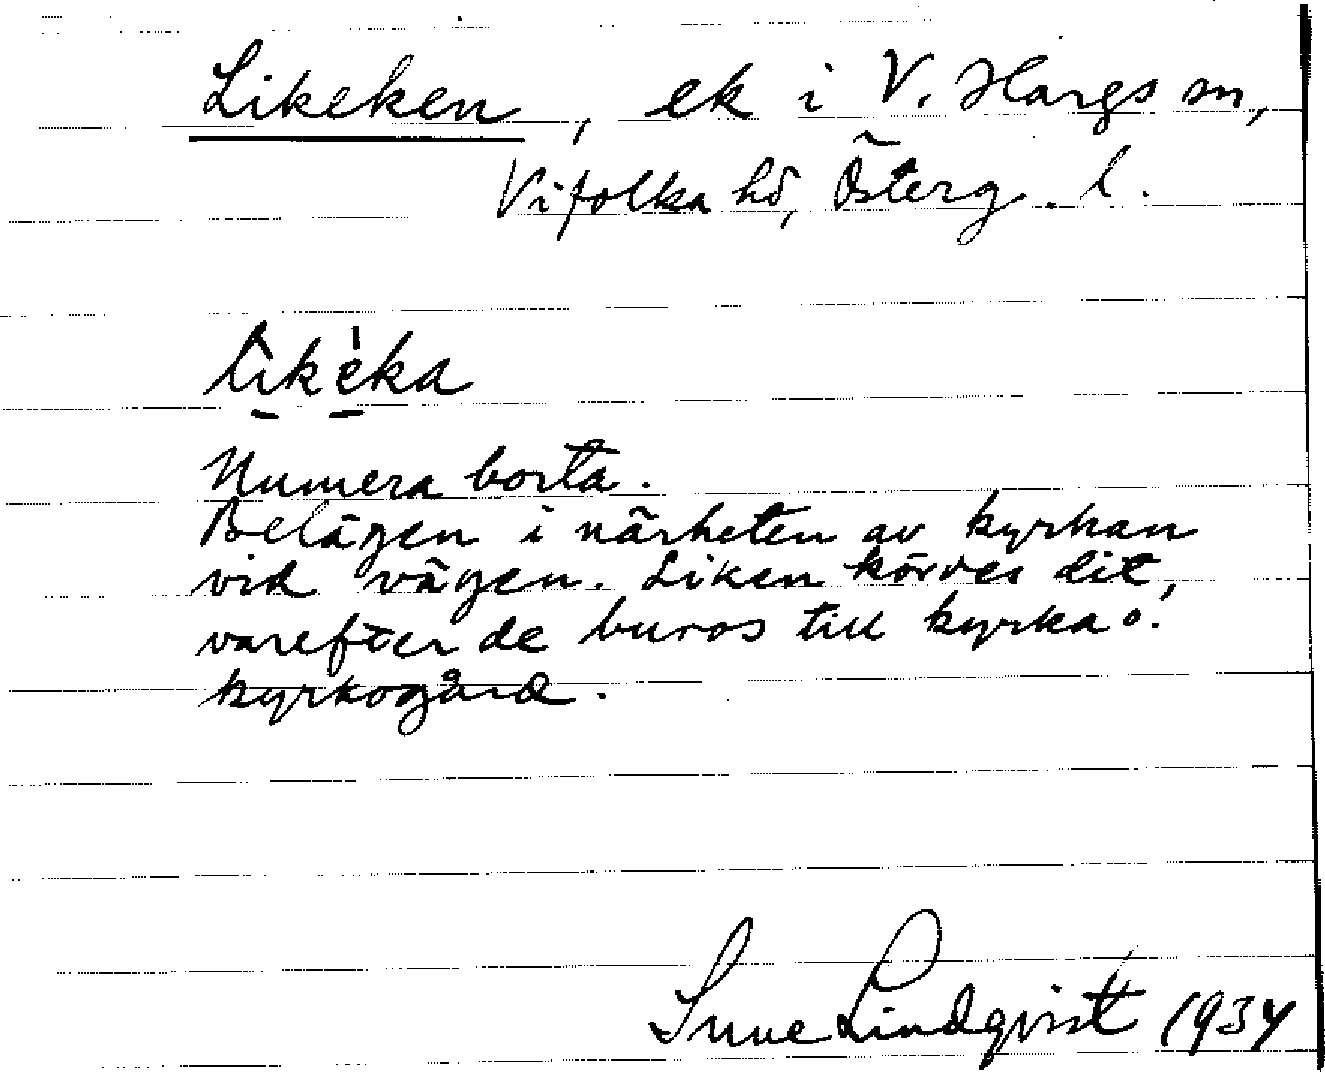 Likeken, ek i V. Hargs sn,
Vifolka hd, Österg. l.
likèka
Numera borta.
Belägen i närheten av kyrkan
vid vägen. Liken kördes dit,
varefter de buros till kyrka o.
kyrkogård.
Sune Lindqvist 1934